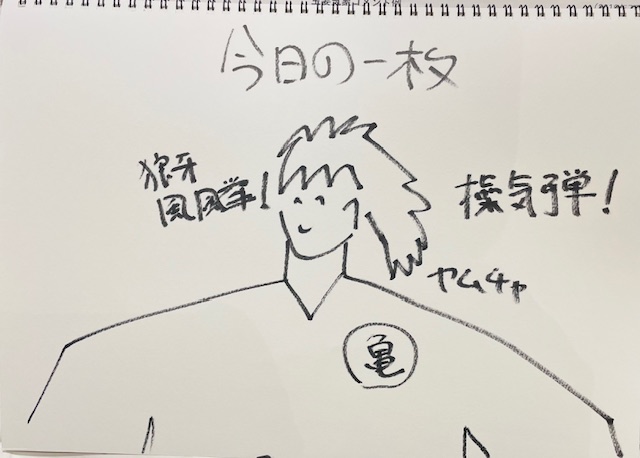 今日の一枚
狼牙
風風拳!
操気弾!
ヤムチャ
亀